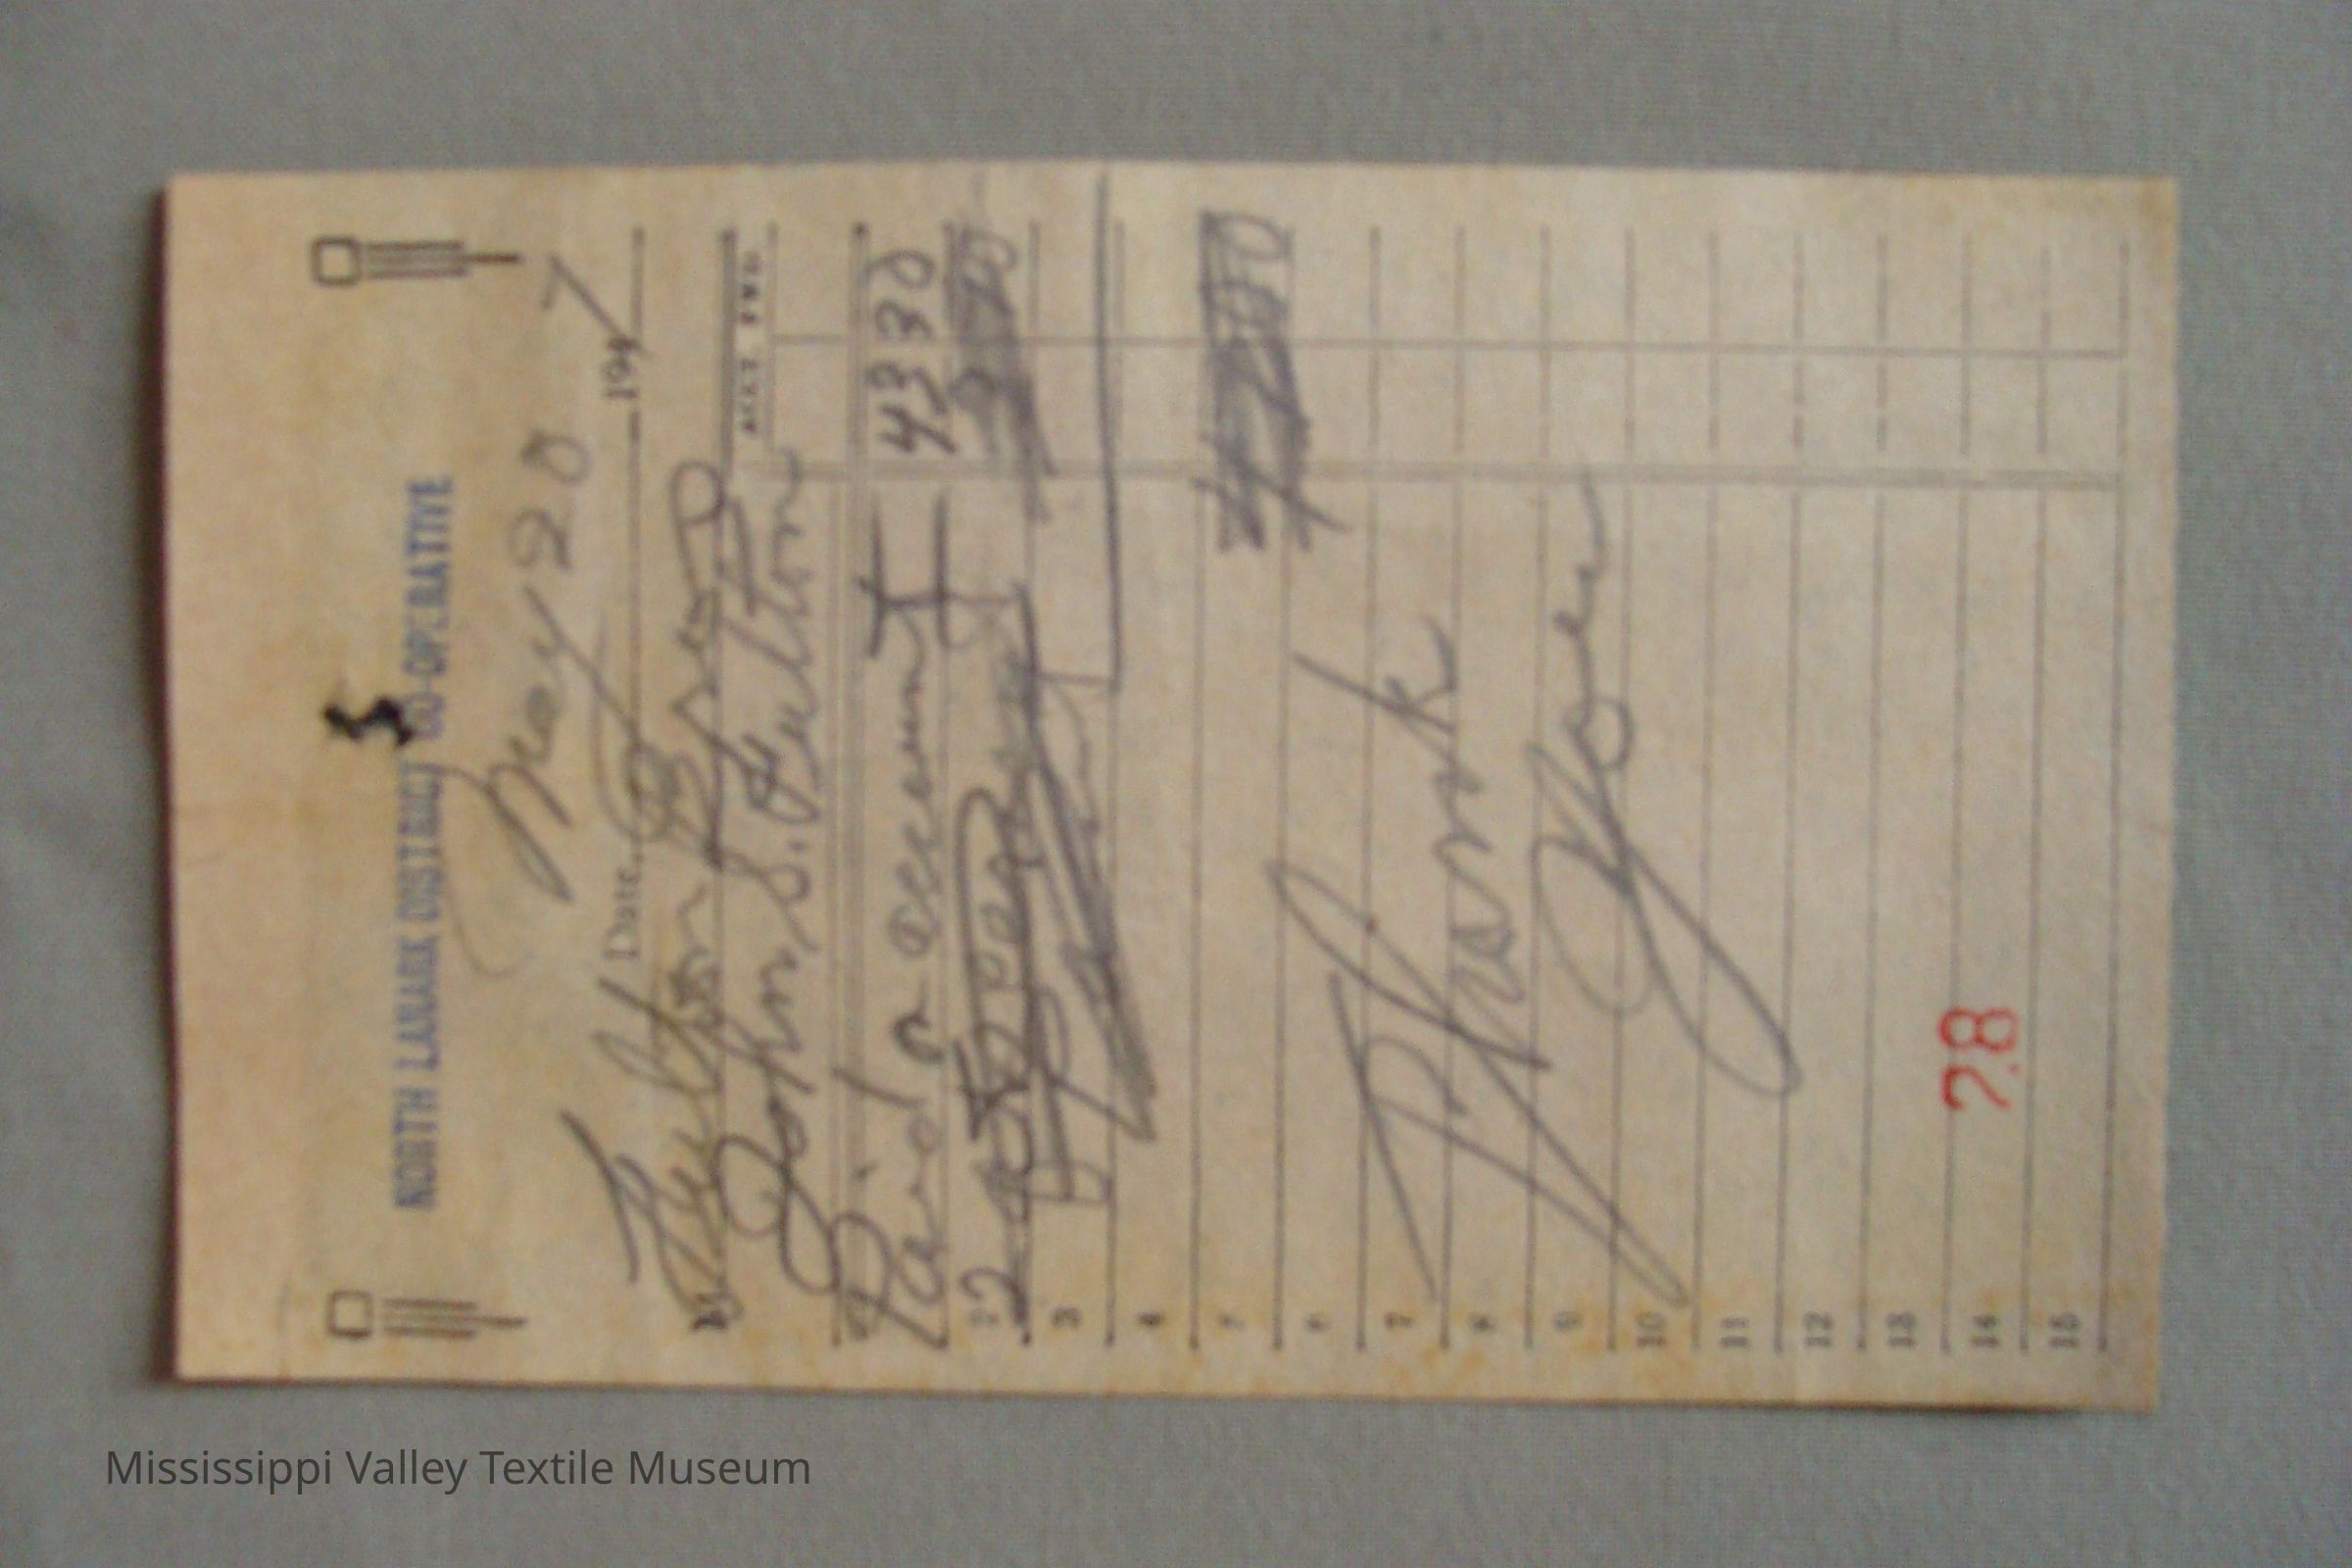 NORTH LANARK DISTRICT CO-OPERATIVE
May 20 7
Date 194
Fulton Bros
John S. Fulton
ACCT. FWD.
Paid on account 43 30
2
3
4
5
6
7
8
9
10
11
12
13
14
15
Thank
You
28
Mississippi Valley Textile Museum